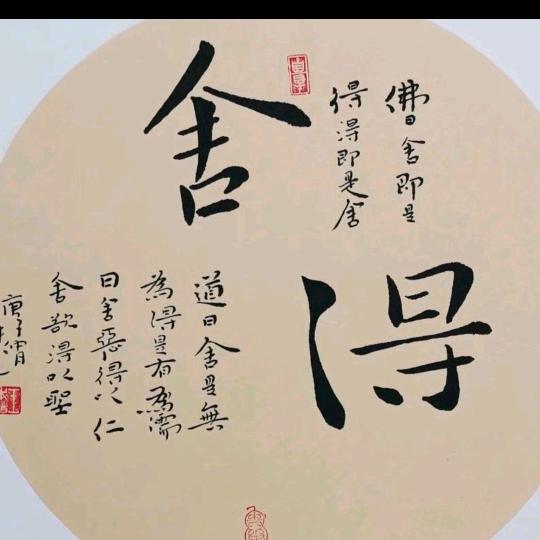 舍得
佛曰舍即是
得得即是舍
道曰舍是無
為得是有為儒
曰舍惡得以仁
舍欲得以聖
庚子